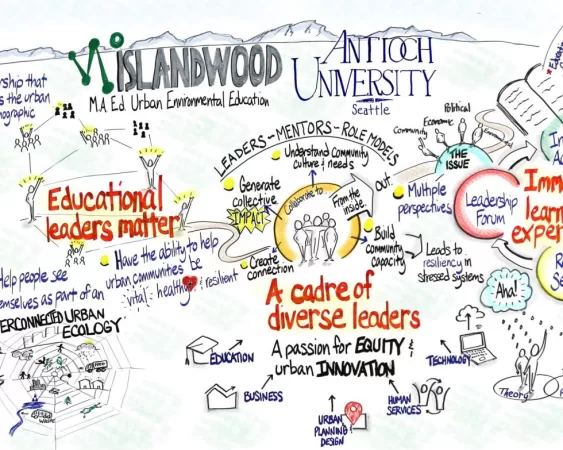 ISLANDWOOD
M.A. Ed Urban Environmental Education
ANTIOCH
UNIVERSITY
Seattle
ership that
s the urban
mographic
Educational
leaders matter
Help people see
emselves as part of an
ERCONNECTED URBAN
ECOLOGY
Have the ability to help
urban communities be
vital · healthy & resilient
LEADERS - MENTORS - ROLE MODELS
Understand community
culture & needs
Generate
collective
IMPACT
Create
connection
Collaborate to
From the
inside
OUT
Build
community
capacity
Leads to
resiliency in
stressed systems
Multiple
perspectives
Community
Economic
Political
THE
ISSUE
Leadership
Forum
Imm
learn
experi
In
Ac
R
Se
Aha!
Theory
A cadre of
diverse leaders
A passion for EQUITY &
urban INNOVATION
EDUCATION
BUSINESS
URBAN
PLANNING &
DESIGN
HUMAN
SERVICES
TECHNOLOGY